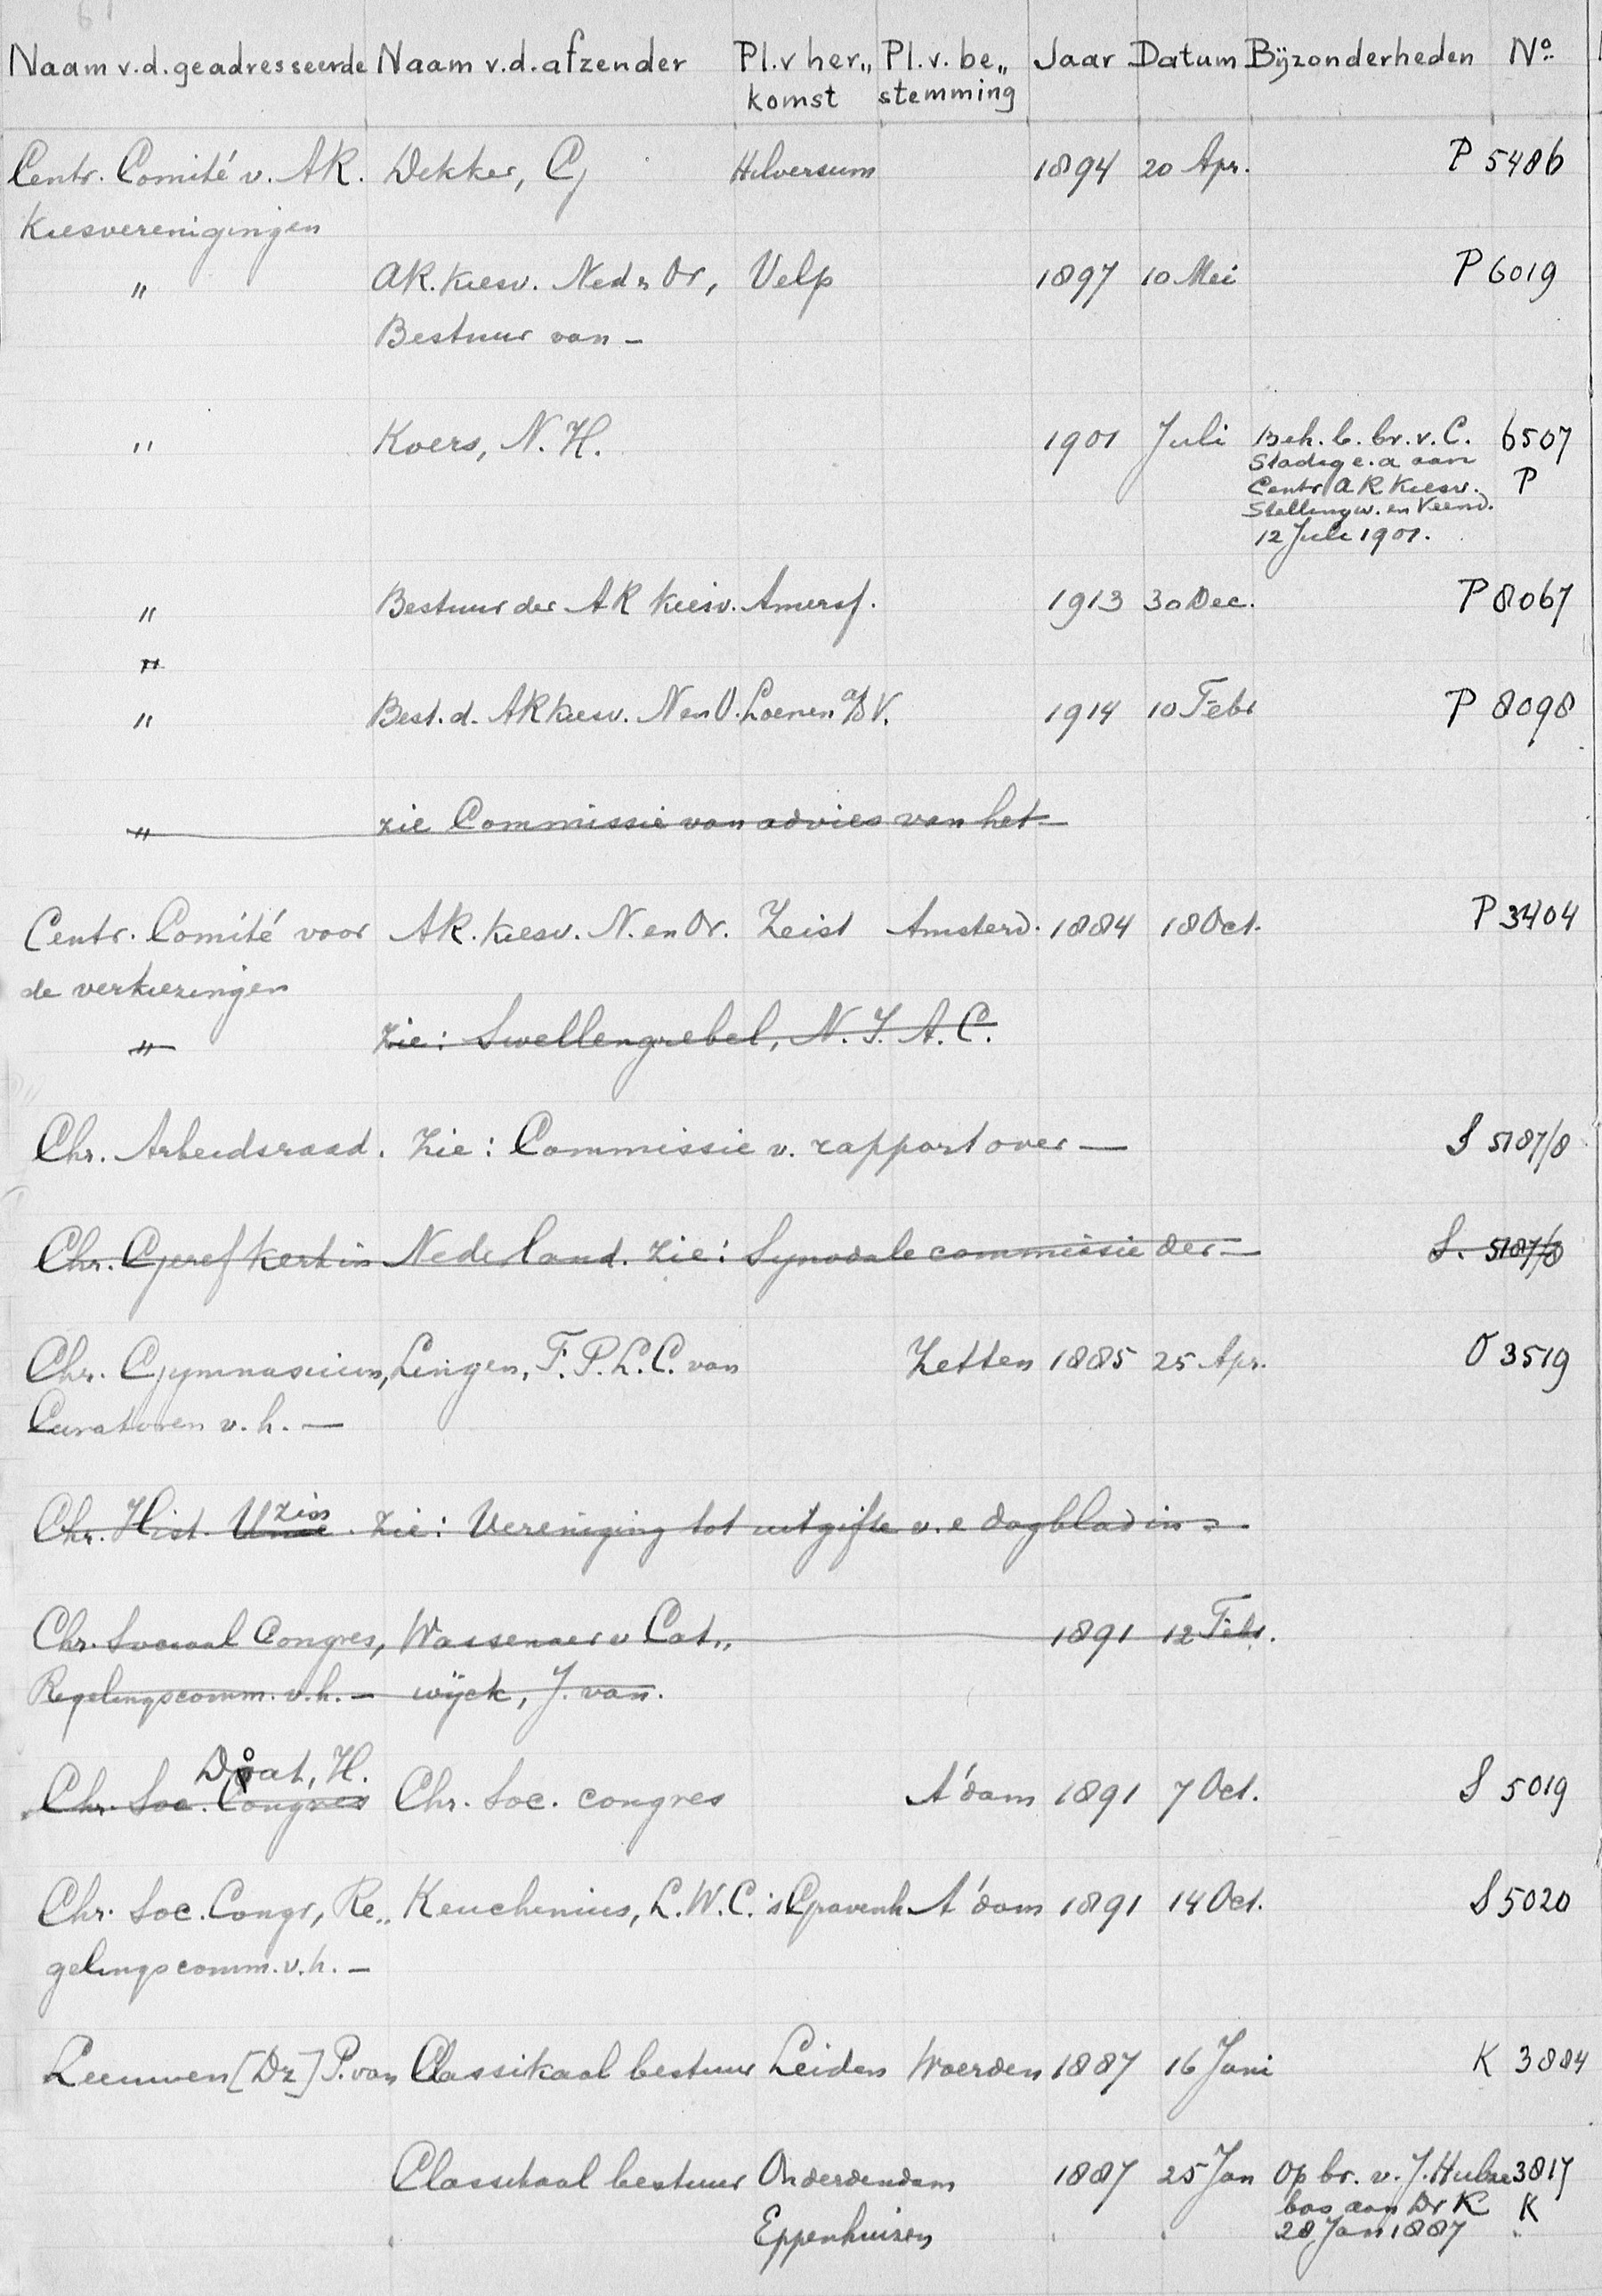 Naam v.d. geadresseerde Naam v.d. afzender Pl. v her„ Pl. v. be„ Jaar Datum Bijzonderheden No.
komst stemming
Centr. Comité v. AR. Dekker, G Hilversum 1894 20 Apr. P 5486
Kiesverenigingen
" AR. kiesv. Ned & Or, Velp 1897 10 Mei P 6019
Bestuur van –
" Koers, N. H. 1901 Juli Beh. b. br. v. C. 6507
Stadig e. a aan
Centr AR Kiesv. P
Stellingw. en Veend.
12 Juli 1901.
" Bestuur der AR kiesv. Amersf. 1913 30 Dec. P 8067
"
" Best. d. AR kiesv. N en O. Loenen a/d V. 1914 10 Febr P 8098
" zie Commissie van advies van het –
Centr. Comité voor AR. kiesv. N. en Or. Zeist Amsterd. 1884 18 Oct. P 3404
de verkiezingen
" Zie: Swellengrebel, N. J. A. C.
Chr. Arbeidsraad. Zie: Commissie v. rapport over — S 5187/8
Chr. Geref kerk in Nederland. Zie: Synodale commissie der — S. 5187/8
Chr. Gymnasium, Lingen, F. P. L. C. van Zetten 1885 25 Apr. O 3519
Curatoren v. h. —
Chr. Hist. Unie . Zie: Vereniging tot uitgifte v. e dagblad in –
Chr. Sociaal Congres, Wassenaer v Cat„ 1891 12 Febr.
Regelingscomm. v. h. – wijck, J. van.
Doat, H.
Chr. Soc. Congres Chr. Soc. congres A'dam 1891 7 Oct. S 5019
Chr. Soc. Congr, Re„ Keuchenius, L. W. C. 's Gravenh A'dam 1891 14 Oct. S 5020
gelingscomm. v. h. –
Leeuwen [Dz] P. van Classikaal bestuur Leiden Woerden 1887 16 Juni K 3884
Classikaal bestuur Onderdendam 1887 25 Jan Op br. v. J. Hulse 3817
bos aan Dr K K
Eppenhuizen " " 28 Jan 1887 "